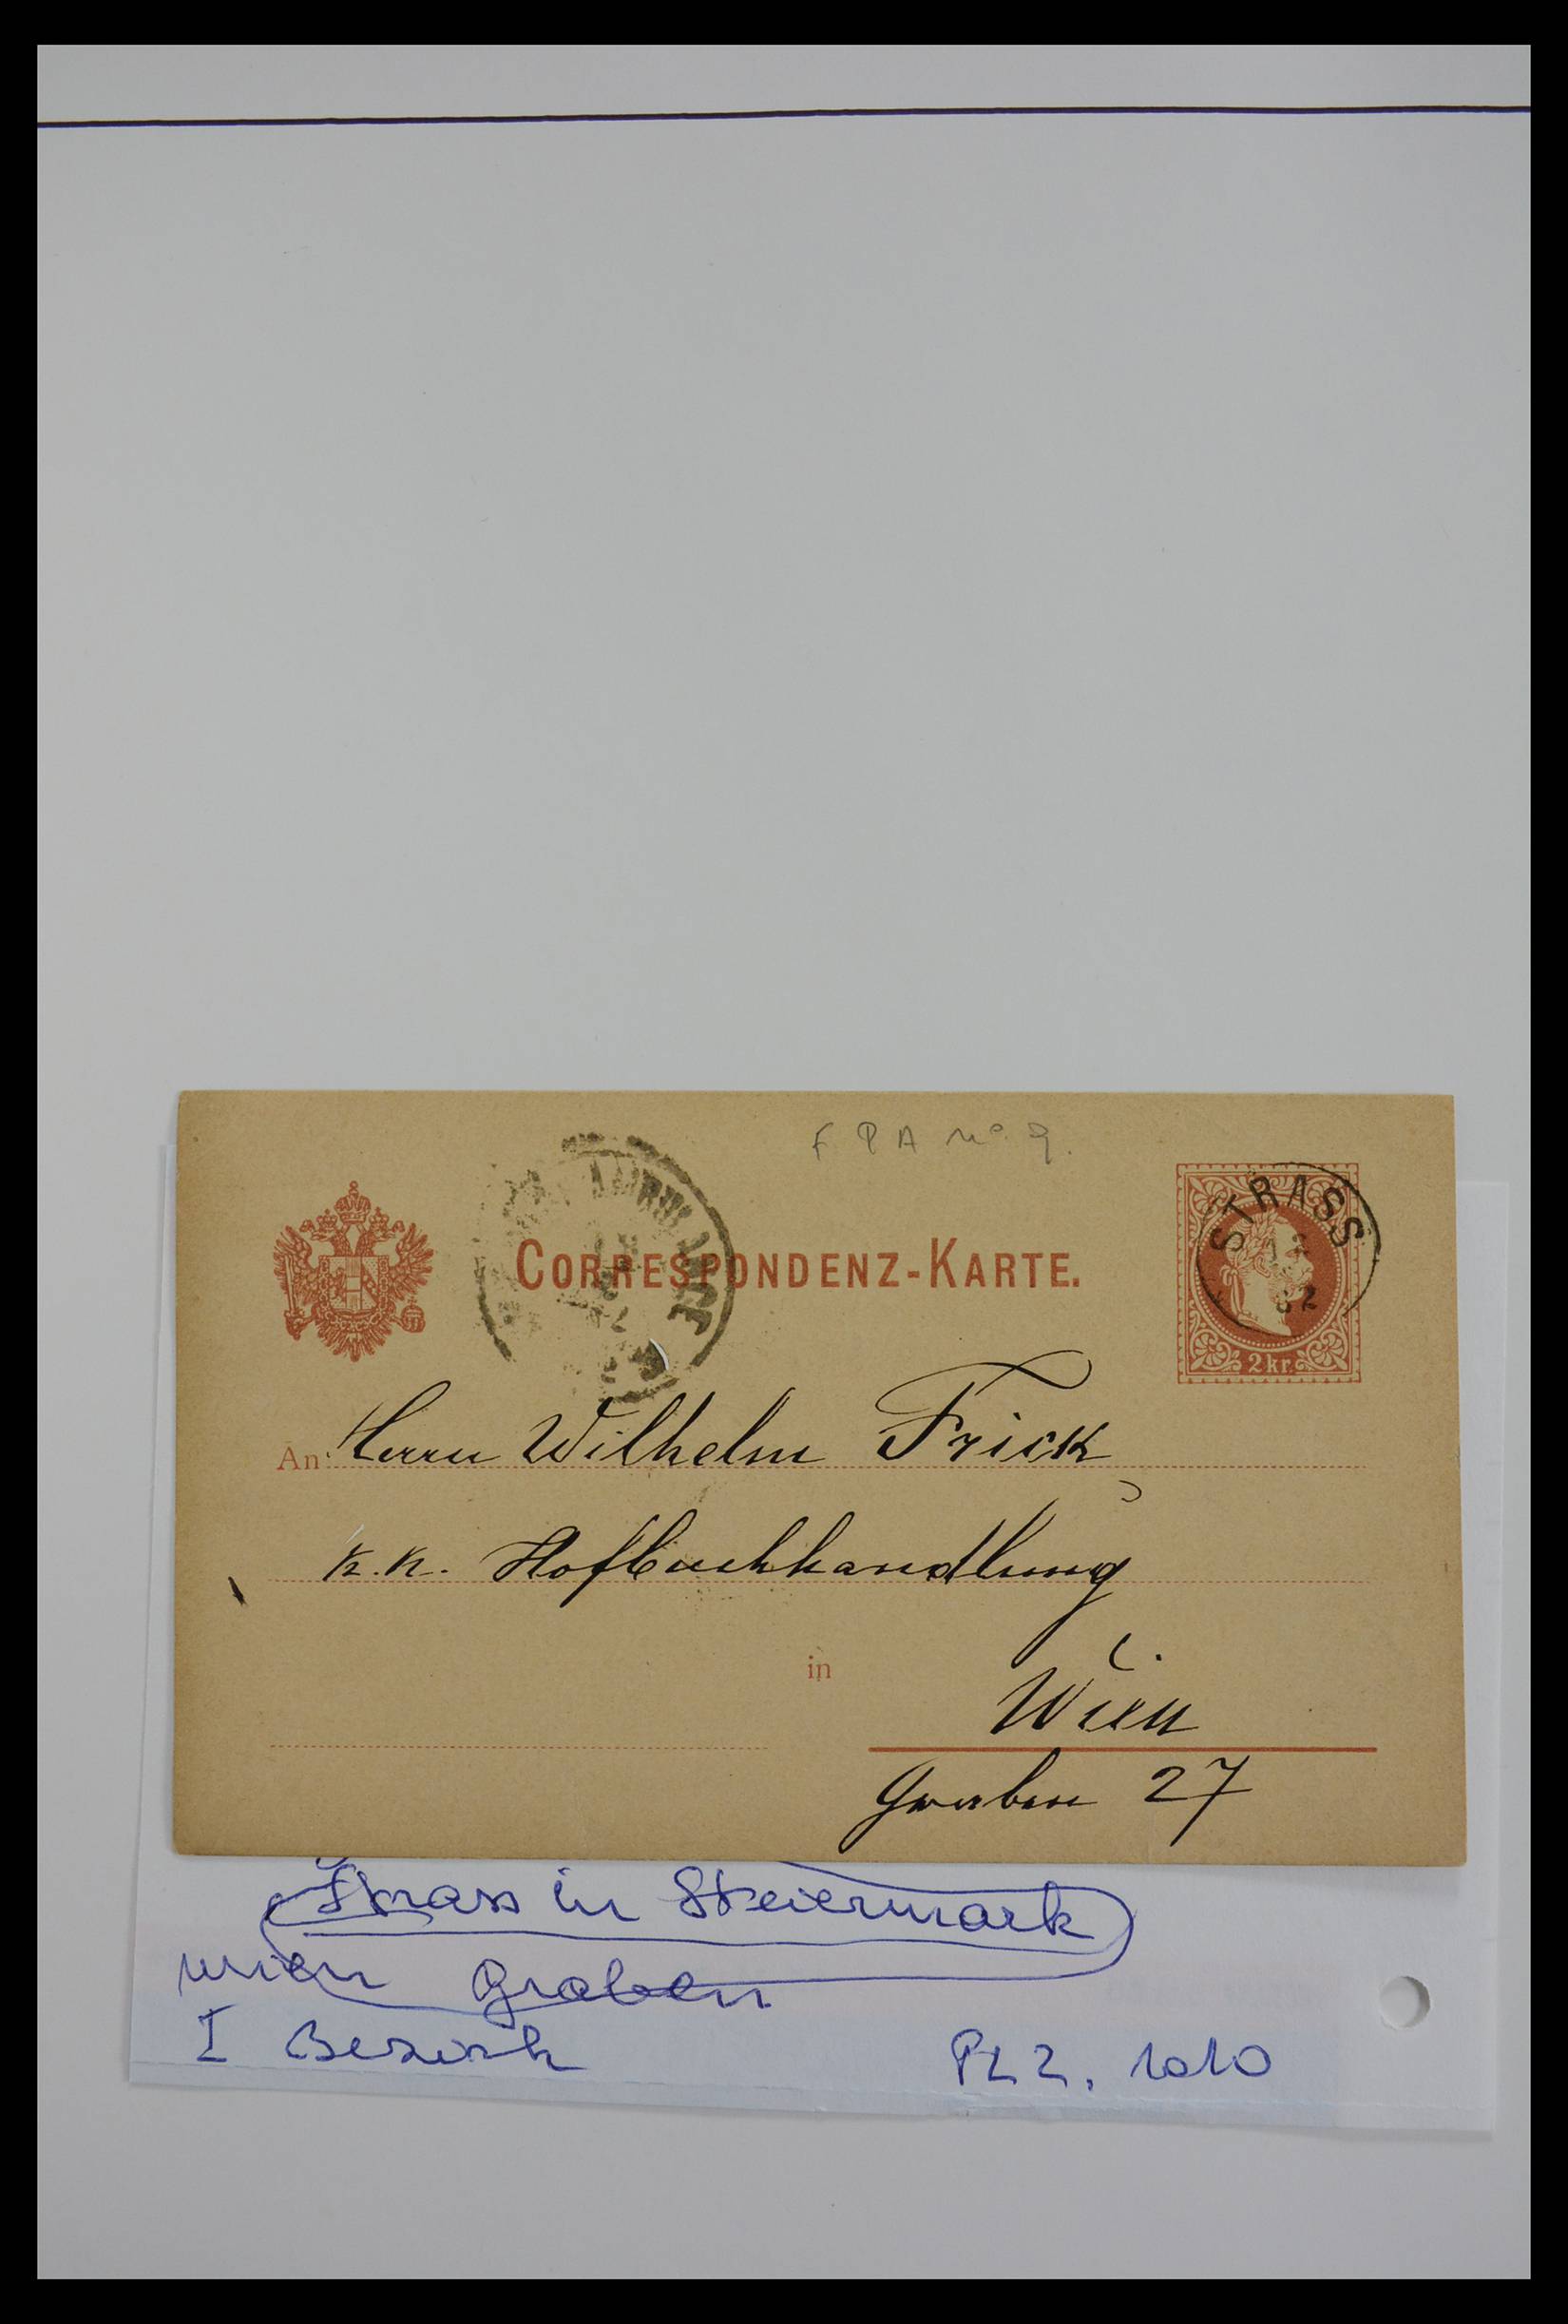 F P A No. 9.
CORRESPONDENZ-KARTE.
STRASS
82
2 kr.
An Herrn Wilhelm Frick
k. k. Hofbuchhandlung
in Wien
Graben 27
Strass in Steiermark
wien Graben
I Bezirk PLZ. 1010